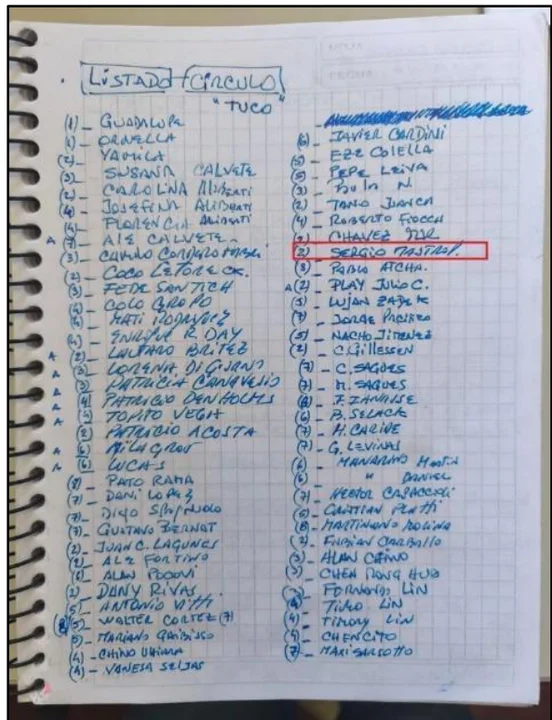 LISTADO CÍRCULO
"TUCO"
(1) - GUADALUPE
(1) - ORNELLA
(2) - YAMILA
(3) - SUSANA CALVETE
(2) - CAROLINA ALIBERTI
(4) - JOSEFINA ALIBERTI
(4) - FLORENCIA ALIBERTI
A ALE CALVETE
(3) - CAMILO
(2) - COCO
(3) - FEDE SANTICH
COLO GROPO
MATI RODRIGUEZ
ENRIQUE R. DAY
A (2) - LAUTARO BRITEZ
A LORENA DI GIORNO
A (3) - PATRICIA CANAVESIO
A (4) - PATRICIO DENHOLMS
A TOPITO VEGA
(2) PATRICIO ACOSTA
A MILAGROS
A LUCAS
(8) - PATO RAMA
(7) - DANI LOPEZ
(7) - DIEGO
(7) - GUSTAVO BERNAT
(2) - JUAN C. LAGUNES
(2) - ALE FORTINO
ALAN
(2) DANY RIVAS
ANTONIO VITTI
WALTER CORTEZ (7)
(5) - MARIANO
(4) - CHINO
(4) - VANESA SEIJAS
(6) - JAVIER CARDINI
(5) - EZE COLELLA
(5) - PEPE LEIVA
(3) -
(2) - TANO
(4) - ROBERTO FIOCCH
CHAVEZ
(2) SERGIO MASTROP.
(3) - PABLO ATCHA.
A (2) - PLAY JULIO C.
(5) - LUJAN
(7) - JORGE PACIFICO
(5) - NACHO JIMENEZ
(2) - C. GILLESSEN
(7) - C. SAGUES
(7) - M. SAGUES
(4) - F. ZANASSE
(6) - B. SELACK
(7) - H. CARIDE
(7) - G. LEVINAS
(6) MANARINO Martin
(6) " DANIEL
(7) - HECTOR CAPACCIOLI
(5) -
(8) - MARTINIANO MOLINA
(2) - FABIAN CARBALLO
(3) - ALAN CHINO
(3) - CHEN
FERNANDO LIN
TIMO LIN
(4) TIMOHY LIN
(4) - CHENCITO
(7) - MARISARSOTTO